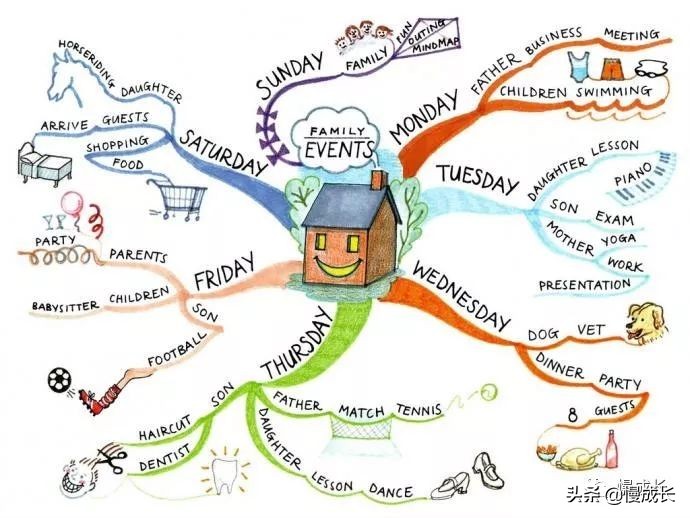 FAMILY
EVENTS
SUNDAY
FAMILY
FUN
OUTING
MINDMAP
MONDAY
FATHER BUSINESS MEETING
CHILDREN SWIMMING
TUESDAY
DAUGHTER LESSON
PIANO
SON EXAM
MOTHER YOGA
WORK
PRESENTATION
WEDNESDAY
DOG VET
DINNER PARTY
8 GUESTS
THURSDAY
FATHER MATCH TENNIS
DAUGHTER LESSON DANCE
SON
HAIRCUT
DENTIST
FRIDAY
PARENTS
PARTY
BABYSITTER CHILDREN
SON
FOOTBALL
SATURDAY
HORSERIDING DAUGHTER
ARRIVE GUESTS
SHOPPING
FOOD
慢成长
头条@慢成长